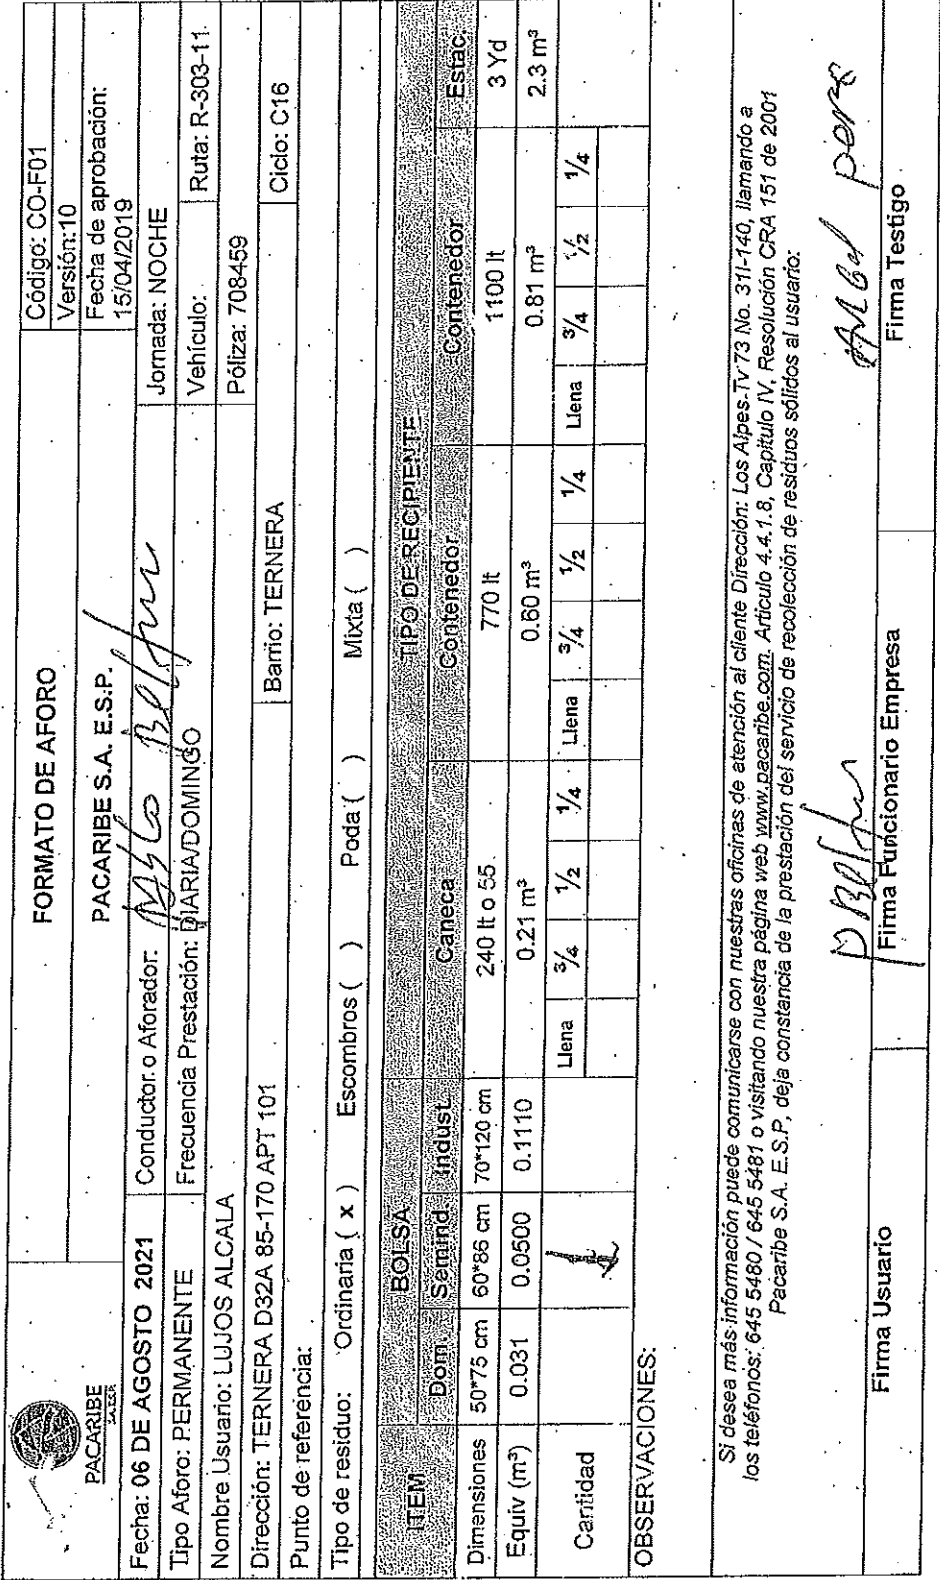 PACARIBE
S.A. E.S.P.
FORMATO DE AFORO
PACARIBE S.A. E.S.P.
Código: CO-F01
Versión:10
Fecha de aprobación:
15/04/2019
Fecha: 06 DE AGOSTO 2021
Conductor o Aforador:
Jornada: NOCHE
Tipo Aforo: PERMANENTE
Frecuencia Prestación: DIARIA/DOMINGO
Vehículo:
Ruta: R-303-11
Nombre Usuario: LUJOS ALCALA
Póliza: 708459
Dirección: TERNERA D32A 85-170 APT 101
Barrio: TERNERA
Ciclo: C16
Punto de referencia:
Tipo de residuo: Ordinaria ( x ) Escombros ( ) Poda ( ) Mixta ( )
ITEM
BOLSA
TIPO DE RECIPIENTE
Dom. Semind. Indust. Caneca Contenedor Contenedor Estac.
Dimensiones 50*75 cm 60*86 cm 70*120 cm 240 lt o 55. 770 lt 1100 lt 3 Yd
Equiv (m³) 0.031 0.0500 0.1110 0.21 m³ 0.60 m³ 0.81 m³ 2.3 m³
Cantidad
Llena 3/4 1/2 1/4 Llena 3/4 1/2 1/4 Llena 3/4 1/2 1/4
OBSERVACIONES:
Si desea más información puede comunicarse con nuestras oficinas de atención al cliente Dirección: Los Alpes-Tv 73 No. 31I-140, llamando a
los teléfonos: 645 5480 / 645 5481 o visitando nuestra página web www.pacaribe.com. Artículo 4.4.1.8, Capitulo IV, Resolución CRA 151 de 2001
Pacaribe S.A. E.S.P, deja constancia de la prestación del servicio de recolección de residuos sólidos al usuario:
Firma Usuario
Firma Funcionario Empresa
Firma Testigo